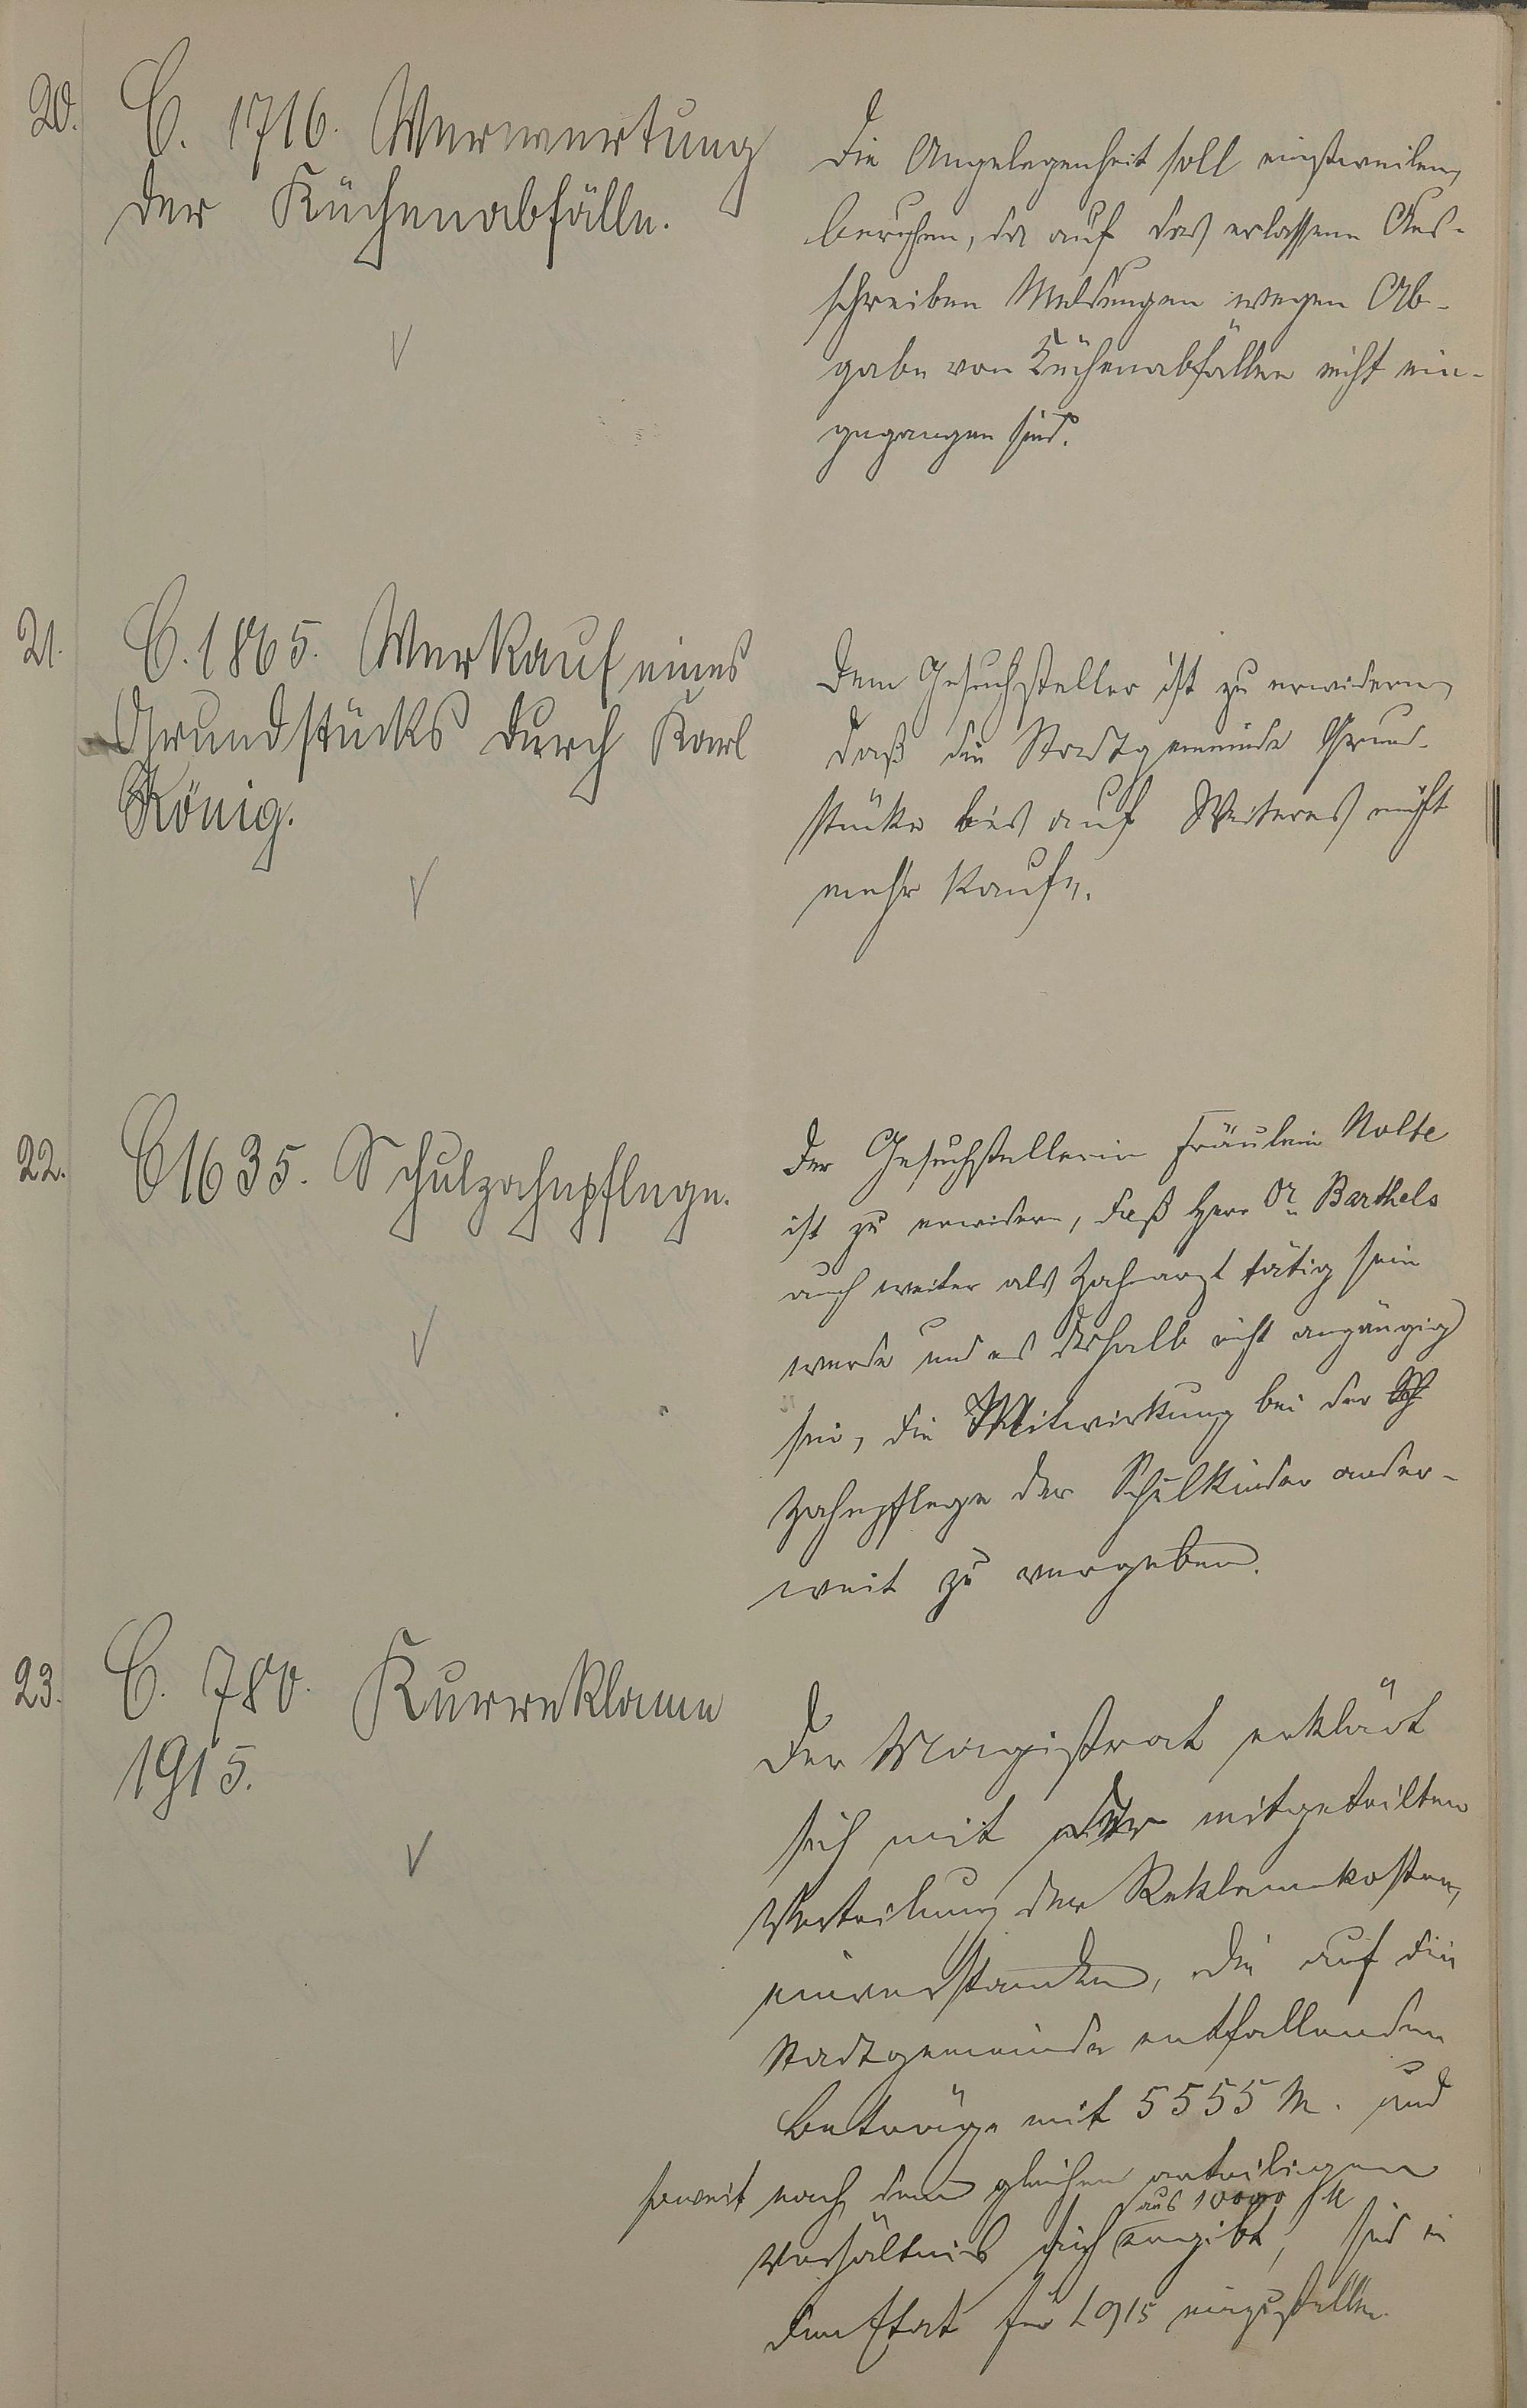 20. C. 1716. Verwertung
der Küchenabfälle.
Die Angelegenheit soll einstweilen
beruhen, da auf das erlassene Aus-
schreiben Meldungen wegen Ab-
gabe von Küchenabfällen nicht ein-
gegangen sind.
21. C. 1865. Verkauf eines
Grundstücks durch Karl
König.
Dem Gesuchsteller ist zu erwidern,
daß die Stadtgemeinde Grund-
stücke bis auf Weiteres nicht
mehr kaufe.
22. C 1635. Schulzahnpflege.
Der Gesuchstellerin Fräulein Nolte
ist zu erwidern, daß Herr Dr. Barthels
auch weiter als Zahnarzt tätig sein
werde und es deshalb nicht angängig
sei, die Mitwirkung bei der Sch
Zahnpflege der Schulkinder ander-
weit zu vergeben.
23. C. 780. Kurreklame
1915.
Der Magistrat erklärt
sich mit der mitgeteilten
Verteilung der Reklamekosten,
einverstanden, die auf die
Stadtgemeinde entfallenden
Beträge mit 5555 M. und
soweit nach dem gleichen anteiligen
aus 10000 M
Verhältnis sich ergibt, sind in
den Etat für 1915 einzustellen.